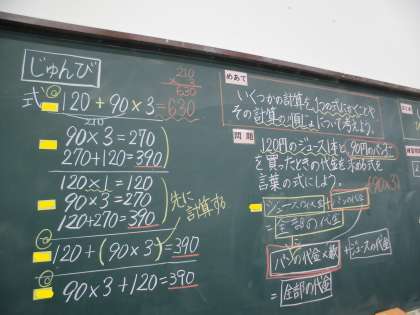 じゅんび
式 120+90×3=630
210
210
× 3
630
90×3=270
270+120=390
120×1=120
90×3=270
120+270=390
先に
計算する
120+(90×3)=390
90×3+120=390
めあて
いくつかの計算を1つの式に
その計算の順じょについて考えよう。
問題
120円のジュース1本と90円のパン
を買ったときの代金を求める式を
言葉の式にしよう。
ジュースの代金+パンの代金
=全部の代金
パンの代金×数+ジュースの代金
=全部の代金